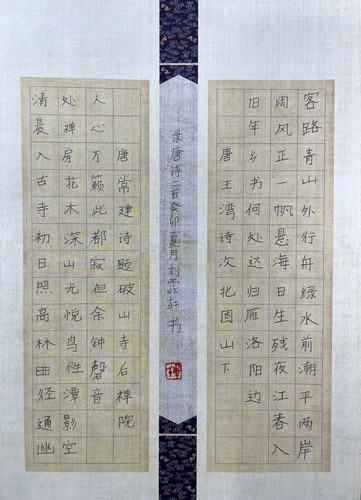 客路青山外行舟绿水前潮平两岸
阔风正一帆悬海日生残夜江春入
旧年乡书何处达归雁洛阳边
唐王湾诗次北固山下
录唐诗二首癸卯夏月刘霏轩书
清晨入古寺初日照高林曲径通幽
处禅房花木深山光悦鸟性潭影空
人心万籁此都寂但余钟磬音
唐常建诗题破山寺后禅院